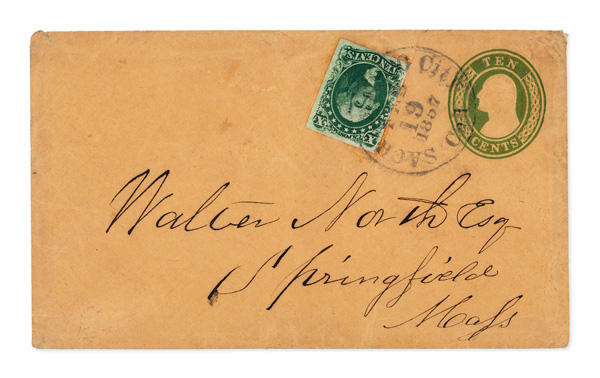 TEN CENTS
X X
SAC CITY
19
1857
CAL
TEN
CENTS
Walter North Esq
Springfield
Mass